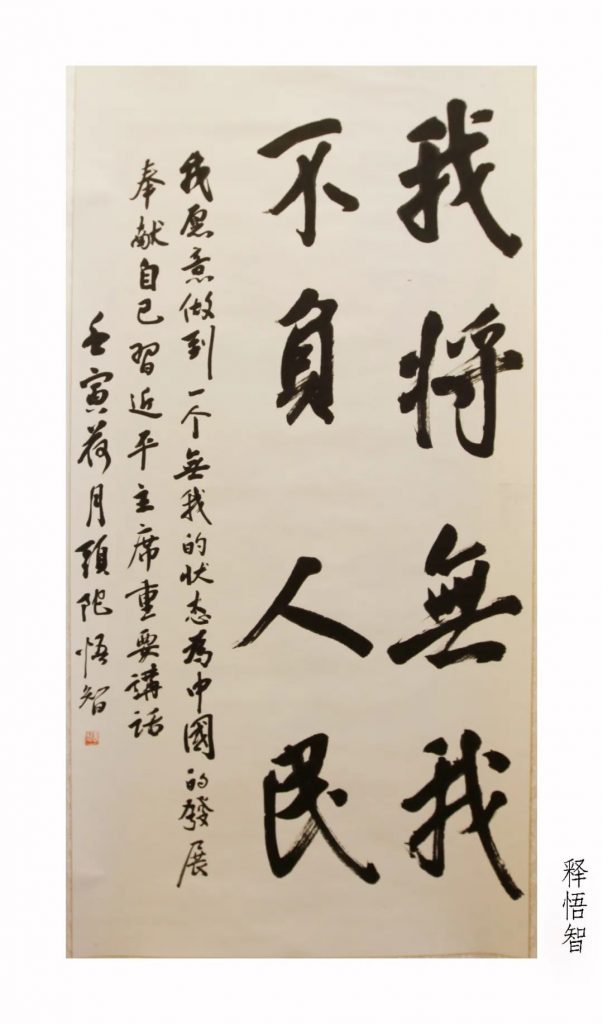 我将無我
不負人民
我愿意做到一个無我的状态為中國的發展
奉献自己習近平主席重要講話
壬寅荷月頭陀悟智
释悟智